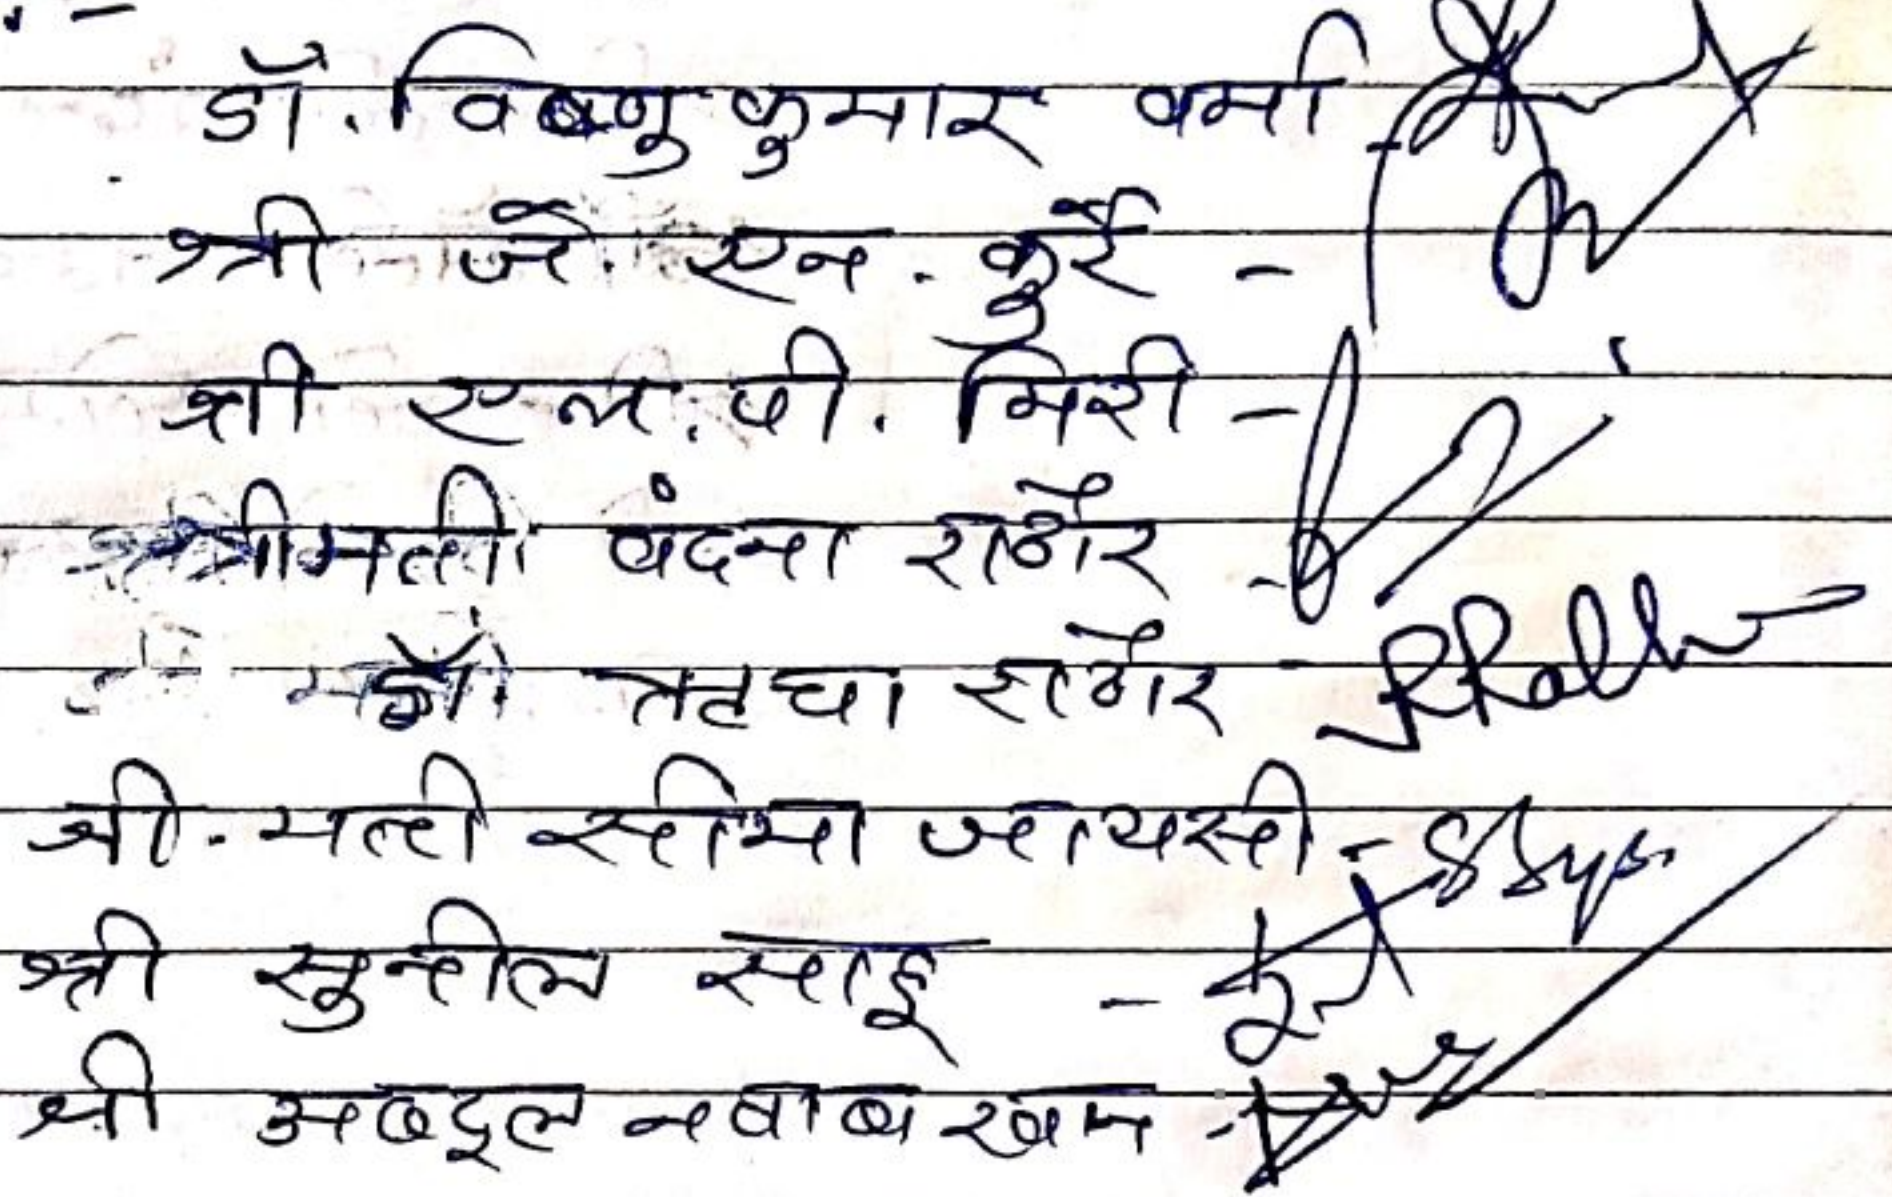 डॉ. विष्णु कुमार वर्मा -
श्री जे. एन. कुर्रे -
श्री एल. पी. मिरी -
श्रीमती वंदना राठौर -
डॉ. राठौर -
श्री.मती सीमा जायसी -
श्री सुनील साहू -
श्री अब्दुल नवाब खान -